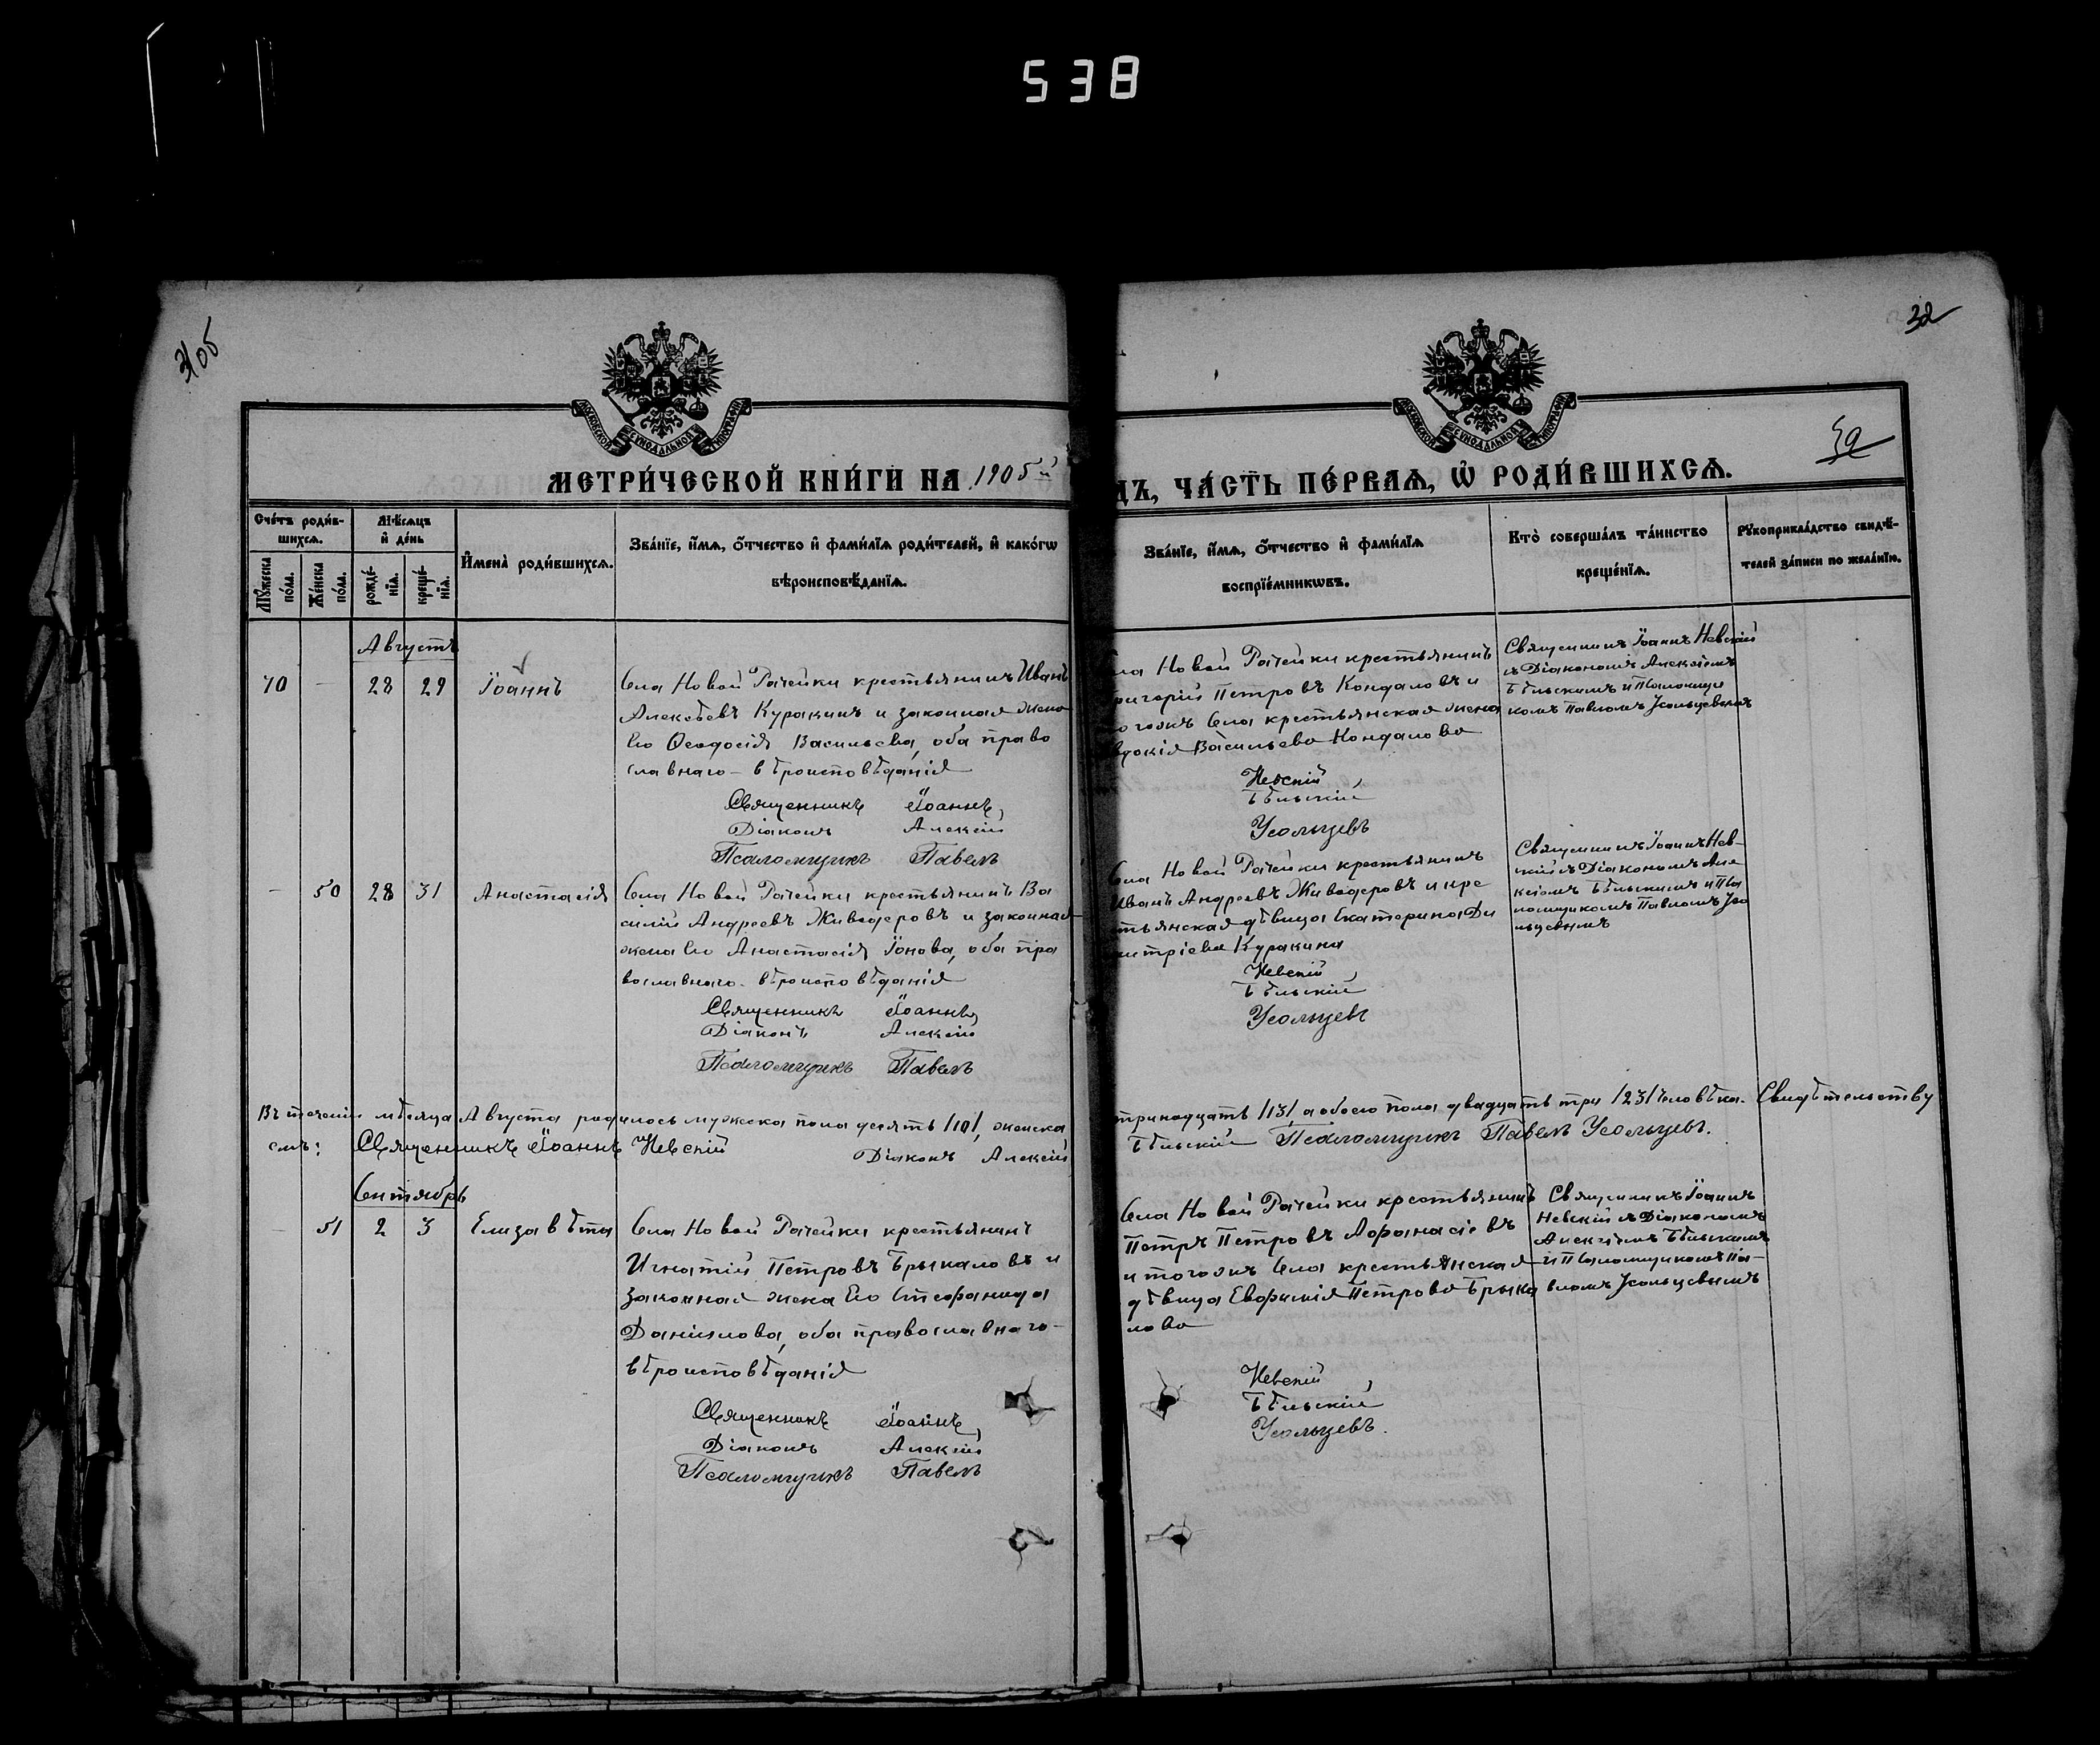 538
31об
32
МОСКОВСКОЙ СѴНОДАЛЬНОЙ ТИПОГРАФІИ
МОСКОВСКОЙ СѴНОДАЛЬНОЙ ТИПОГРАФІИ
МЕТРИ́ЧЕСКОЙ КНИ́ГИ НА 1905й
ДЪ, ЧА́СТЬ ПЕ́РВАѦ, Ѡ҆ РОДИ́ВШИХСѦ.
Сче́тъ роди́в-
шихсѧ.
Мꙋ́жеска
по́ла.
Же́нска
по́ла.
Мѣ́сѧцъ
и҆ де́нь
рожде́-
нїѧ.
креще́-
нїѧ.
И҆мена̀ роди́вшихсѧ.
Зва́нїе, и҆́мѧ, ѻ҆́тчество и҆ фами́лїѧ роди́телей, и҆ како́гѡ
вѣроисповѣ́данїѧ.
Зва́нїе, и҆́мѧ, ѻ҆́тчество и҆ фами́лїѧ
воспрїе́мникѡвъ.
Кто̀ соверша́лъ та́инство
креще́нїѧ.
Рꙋкоприкла́дство свидѣ́-
телей за́писи по жела́нїю.
Августъ
70 - 28 29 Іоаннъ
Села Новой Рачейки крестьянинъ Иванъ
Алексѣевъ Куракинъ и законная жена
его Ѳеодосія Васильева, оба право
славнаго вѣроисповѣданія
Священникъ Іоаннъ
Діаконъ Алексій
Псаломщикъ Павелъ
ла Новой Рачейки крестьянинъ
ригорій Петровъ Кондаловъ и
огожъ села крестьянская жена
вдокія Васильева Кондалова
Невскій
Бѣльскій
Усольцевъ
Священникъ Іоаннъ Невскій
съ Діакономъ Алексіемъ
Бѣльскимъ и Псаломщи
комъ Павломъ Усольцевымъ
- 50 28 31 Анастасія
Села Новой Рачейки крестьянинъ Ва
силій Андреевъ Живодеровъ и законная
жена его Анастасія Іонова, оба пра
вославнаго вѣроисповѣданія
Священникъ Іоаннъ
Діаконъ Алексій
Псаломщикъ Павелъ
Села Новой Рачейки крестьянинъ
Иванъ Андреевъ Живодеровъ и кре
стьянская дѣвица Екатерина Ди
митріева Куракина
Невскій
Бѣльскій
Усольцевъ
Священникъ Іоаннъ Нев-
скій съ Діакономъ Але
ксіемъ Бѣльскимъ и Пса
ломщикомъ Павломъ Усо
льцевымъ
Въ теченіи мѣсяца Августа родилось мужеска пола десять /10/, женска
тринадцать /13/ а обоего пола двадцать три /23/ человѣка. Свидѣтельству
емъ: Священникъ Іоаннъ Невскій Діаконъ Алексій
Бѣльскій Псаломщикъ Павелъ Усольцевъ.
Сентябрь
51 2 3 Елизавѣта
Села Новой Рачейки крестьянинъ
Игнатій Петровъ Брыкаловъ и
законная жена его Стефанида
Даніилова, оба православнаго
вѣроисповѣданія
Священникъ Іоаннъ
Діаконъ Алексій
Псаломщикъ Павелъ
Села Новой Рачейки крестьянинъ
Петръ Петровъ Афанасіевъ
и тогожъ села крестьянская
дѣвица Евфимія Петрова Брыка
лова
Невскій
Бѣльскій
Усольцевъ.
Священникъ Іоаннъ
Невскій съ Діакономъ
Алексіемъ Бѣльскимъ
и Псаломщикомъ Па-
вломъ Усольцевымъ